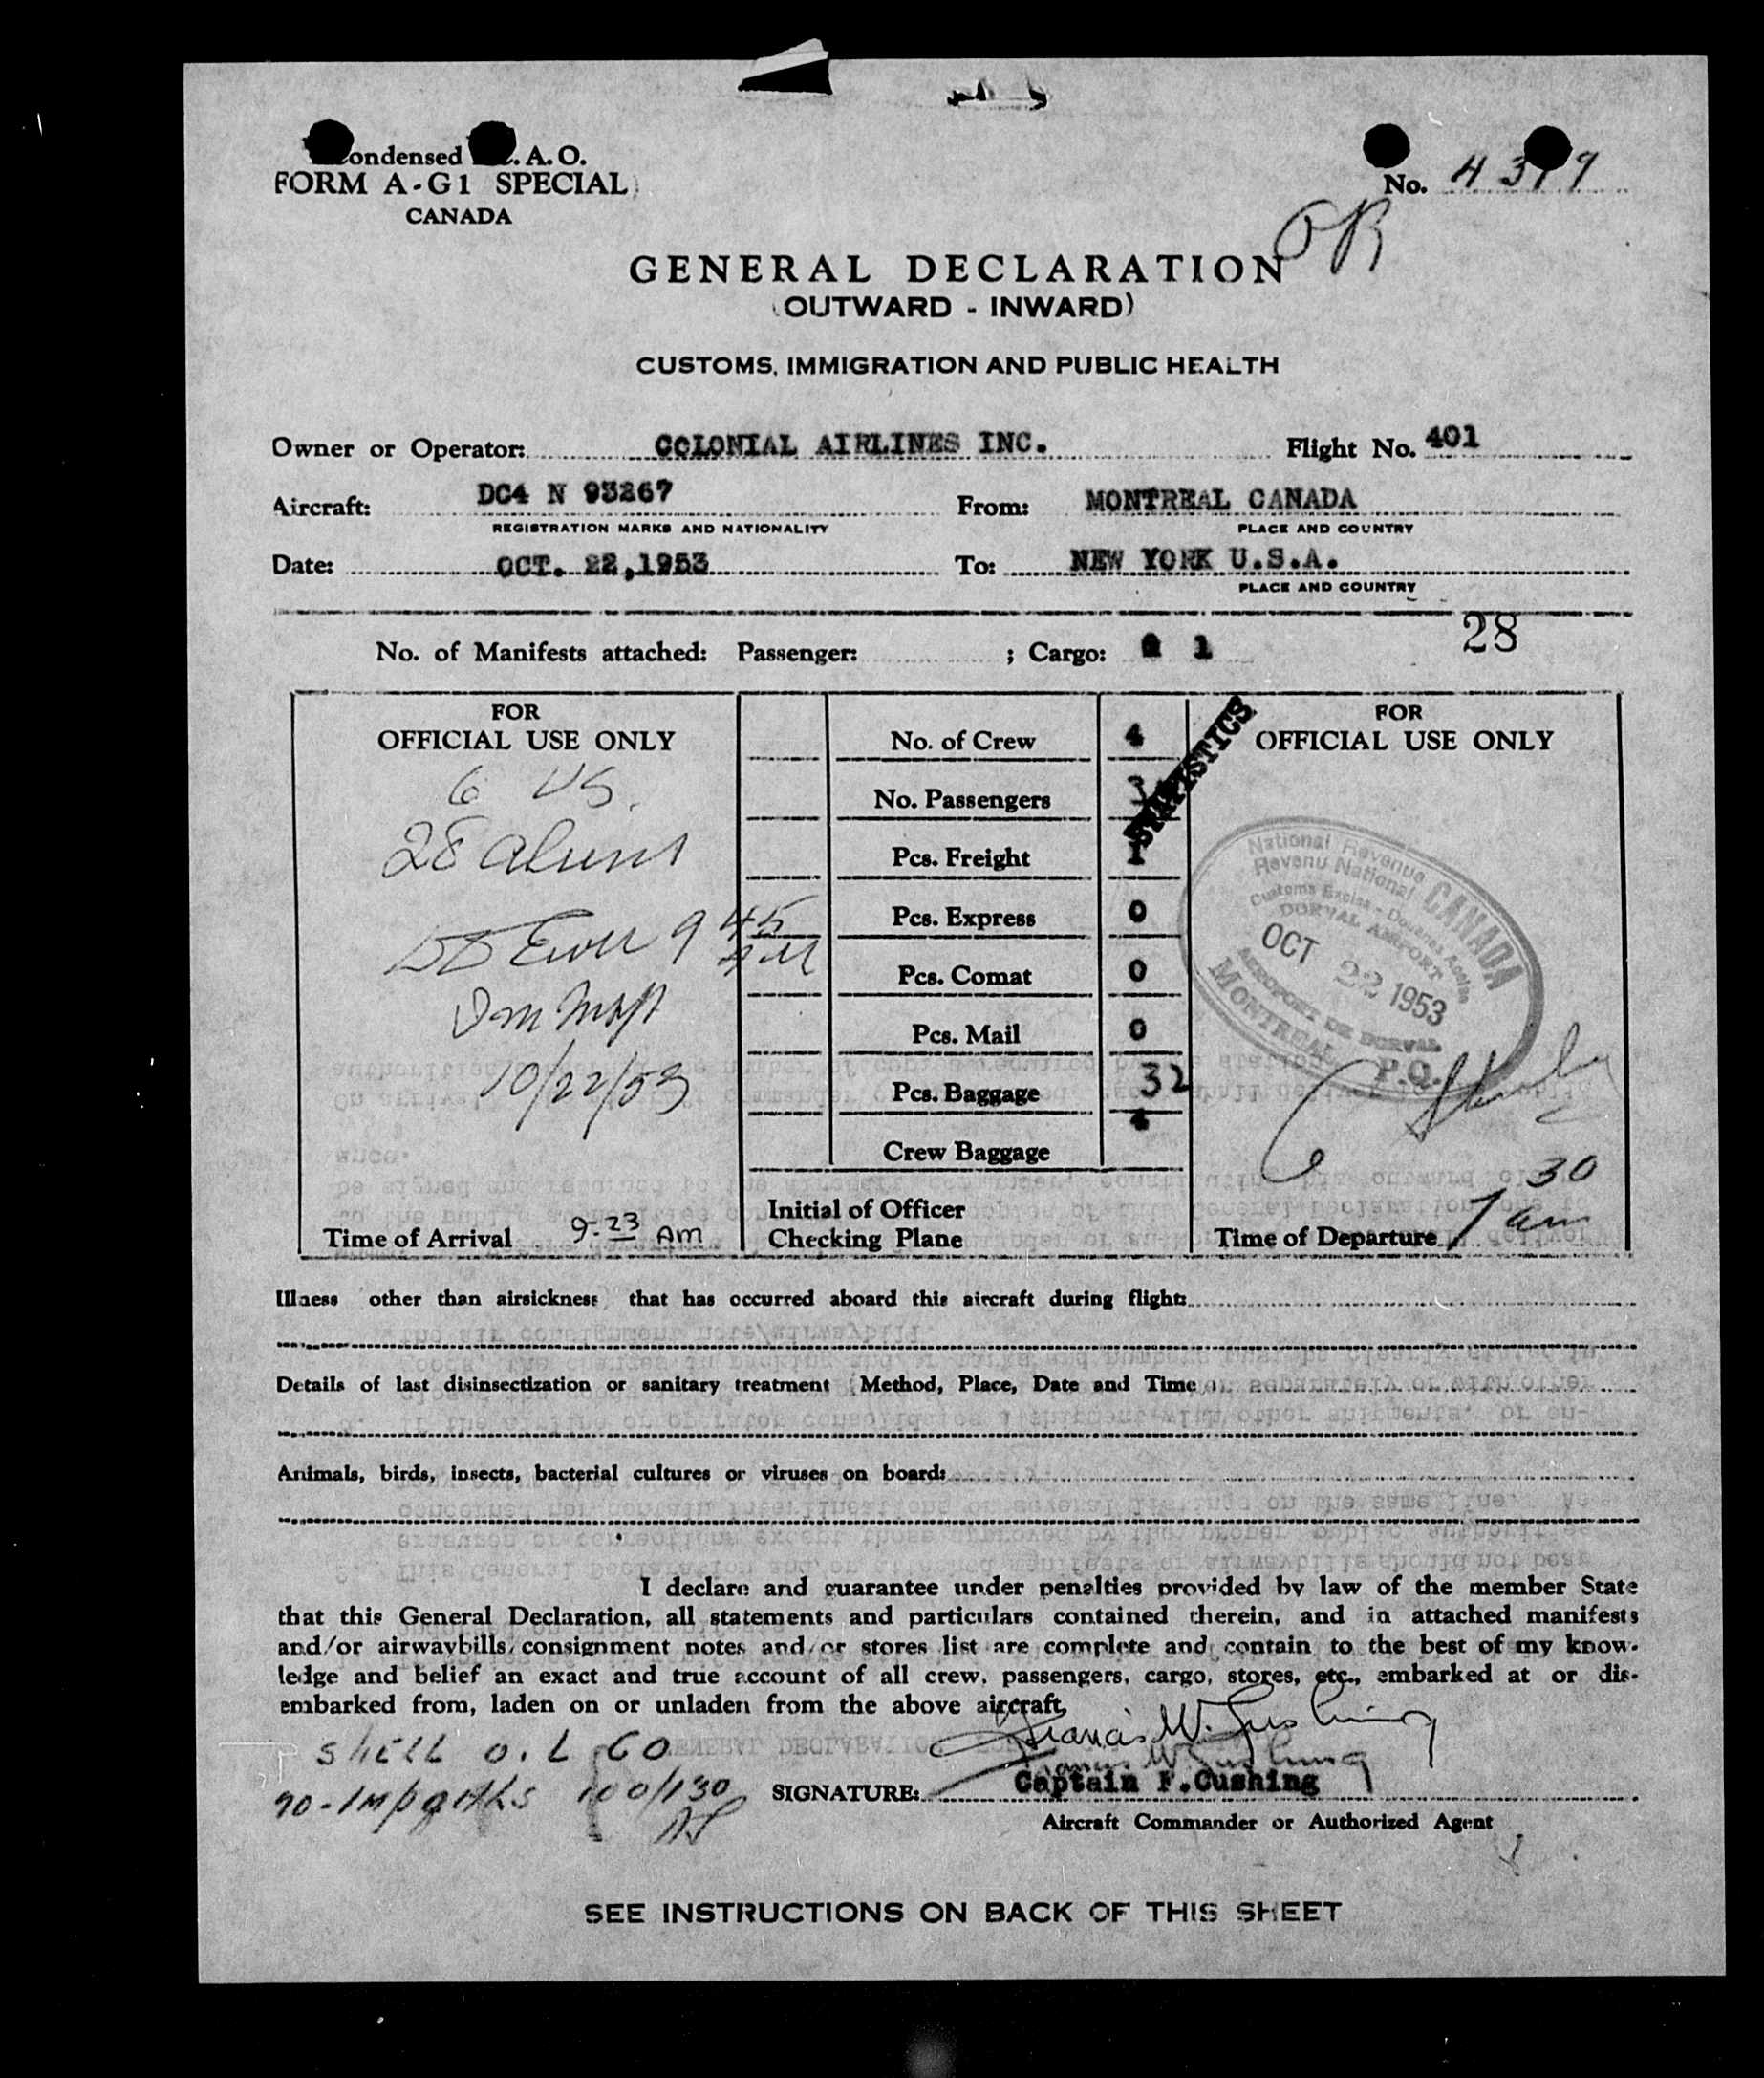 ondensed . A. O.
FORM A-G1 SPECIAL
CANADA
No.
GENERAL DECLARATION
(OUTWARD - INWARD)
CUSTOMS, IMMIGRATION AND PUBLIC HEALTH
Owner or Operator: COLONIAL AIRLINES INC. Flight No. 401
Aircraft: DC4 N 93267 From: MONTREAL CANADA
REGISTRATION MARKS AND NATIONALITY PLACE AND COUNTRY
Date: OCT. 22,1953 To: NEW YORK U.S.A.
PLACE AND COUNTRY
28
No. of Manifests attached: Passenger: ; Cargo: 1
FOR
OFFICIAL USE ONLY
6 US.
28 aliens
9 45
AM
10/22/53
Time of Arrival 9-23 AM
No. of Crew 4
No. Passengers
Pcs. Freight 1
Pcs. Express 0
Pcs. Comat 0
Pcs. Mail 0
Pcs. Baggage 32
Crew Baggage 4
Initial of Officer
Checking Plane
STATISTICS
FOR
OFFICIAL USE ONLY
National Revenue
Revenu National
CANADA
Customs Excise - Douanes Accise
DORVAL AIRPORT
OCT 22 1953
AEROPORT DE DORVAL
MONTREAL P.Q.
Time of Departure 7 30 am
Illness other than airsickness that has occurred aboard this aircraft during flight:
Details of last disinsectization or sanitary treatment (Method, Place, Date and Time)
Animals, birds, insects, bacterial cultures or viruses on board:
I declare and guarantee under penalties provided by law of the member State
that this General Declaration, all statements and particulars contained therein, and in attached manifests
and/or airwaybills, consignment notes and/or stores list are complete and contain to the best of my know-
ledge and belief an exact and true account of all crew, passengers, cargo, stores, etc., embarked at or dis-
embarked from, laden on or unladen from the above aircraft.
SHELL OIL CO
100/130
Francis W. Cushing
Francis W Cushing
SIGNATURE: Captain F.Cushing
Aircraft Commander or Authorized Agent
SEE INSTRUCTIONS ON BACK OF THIS SHEET